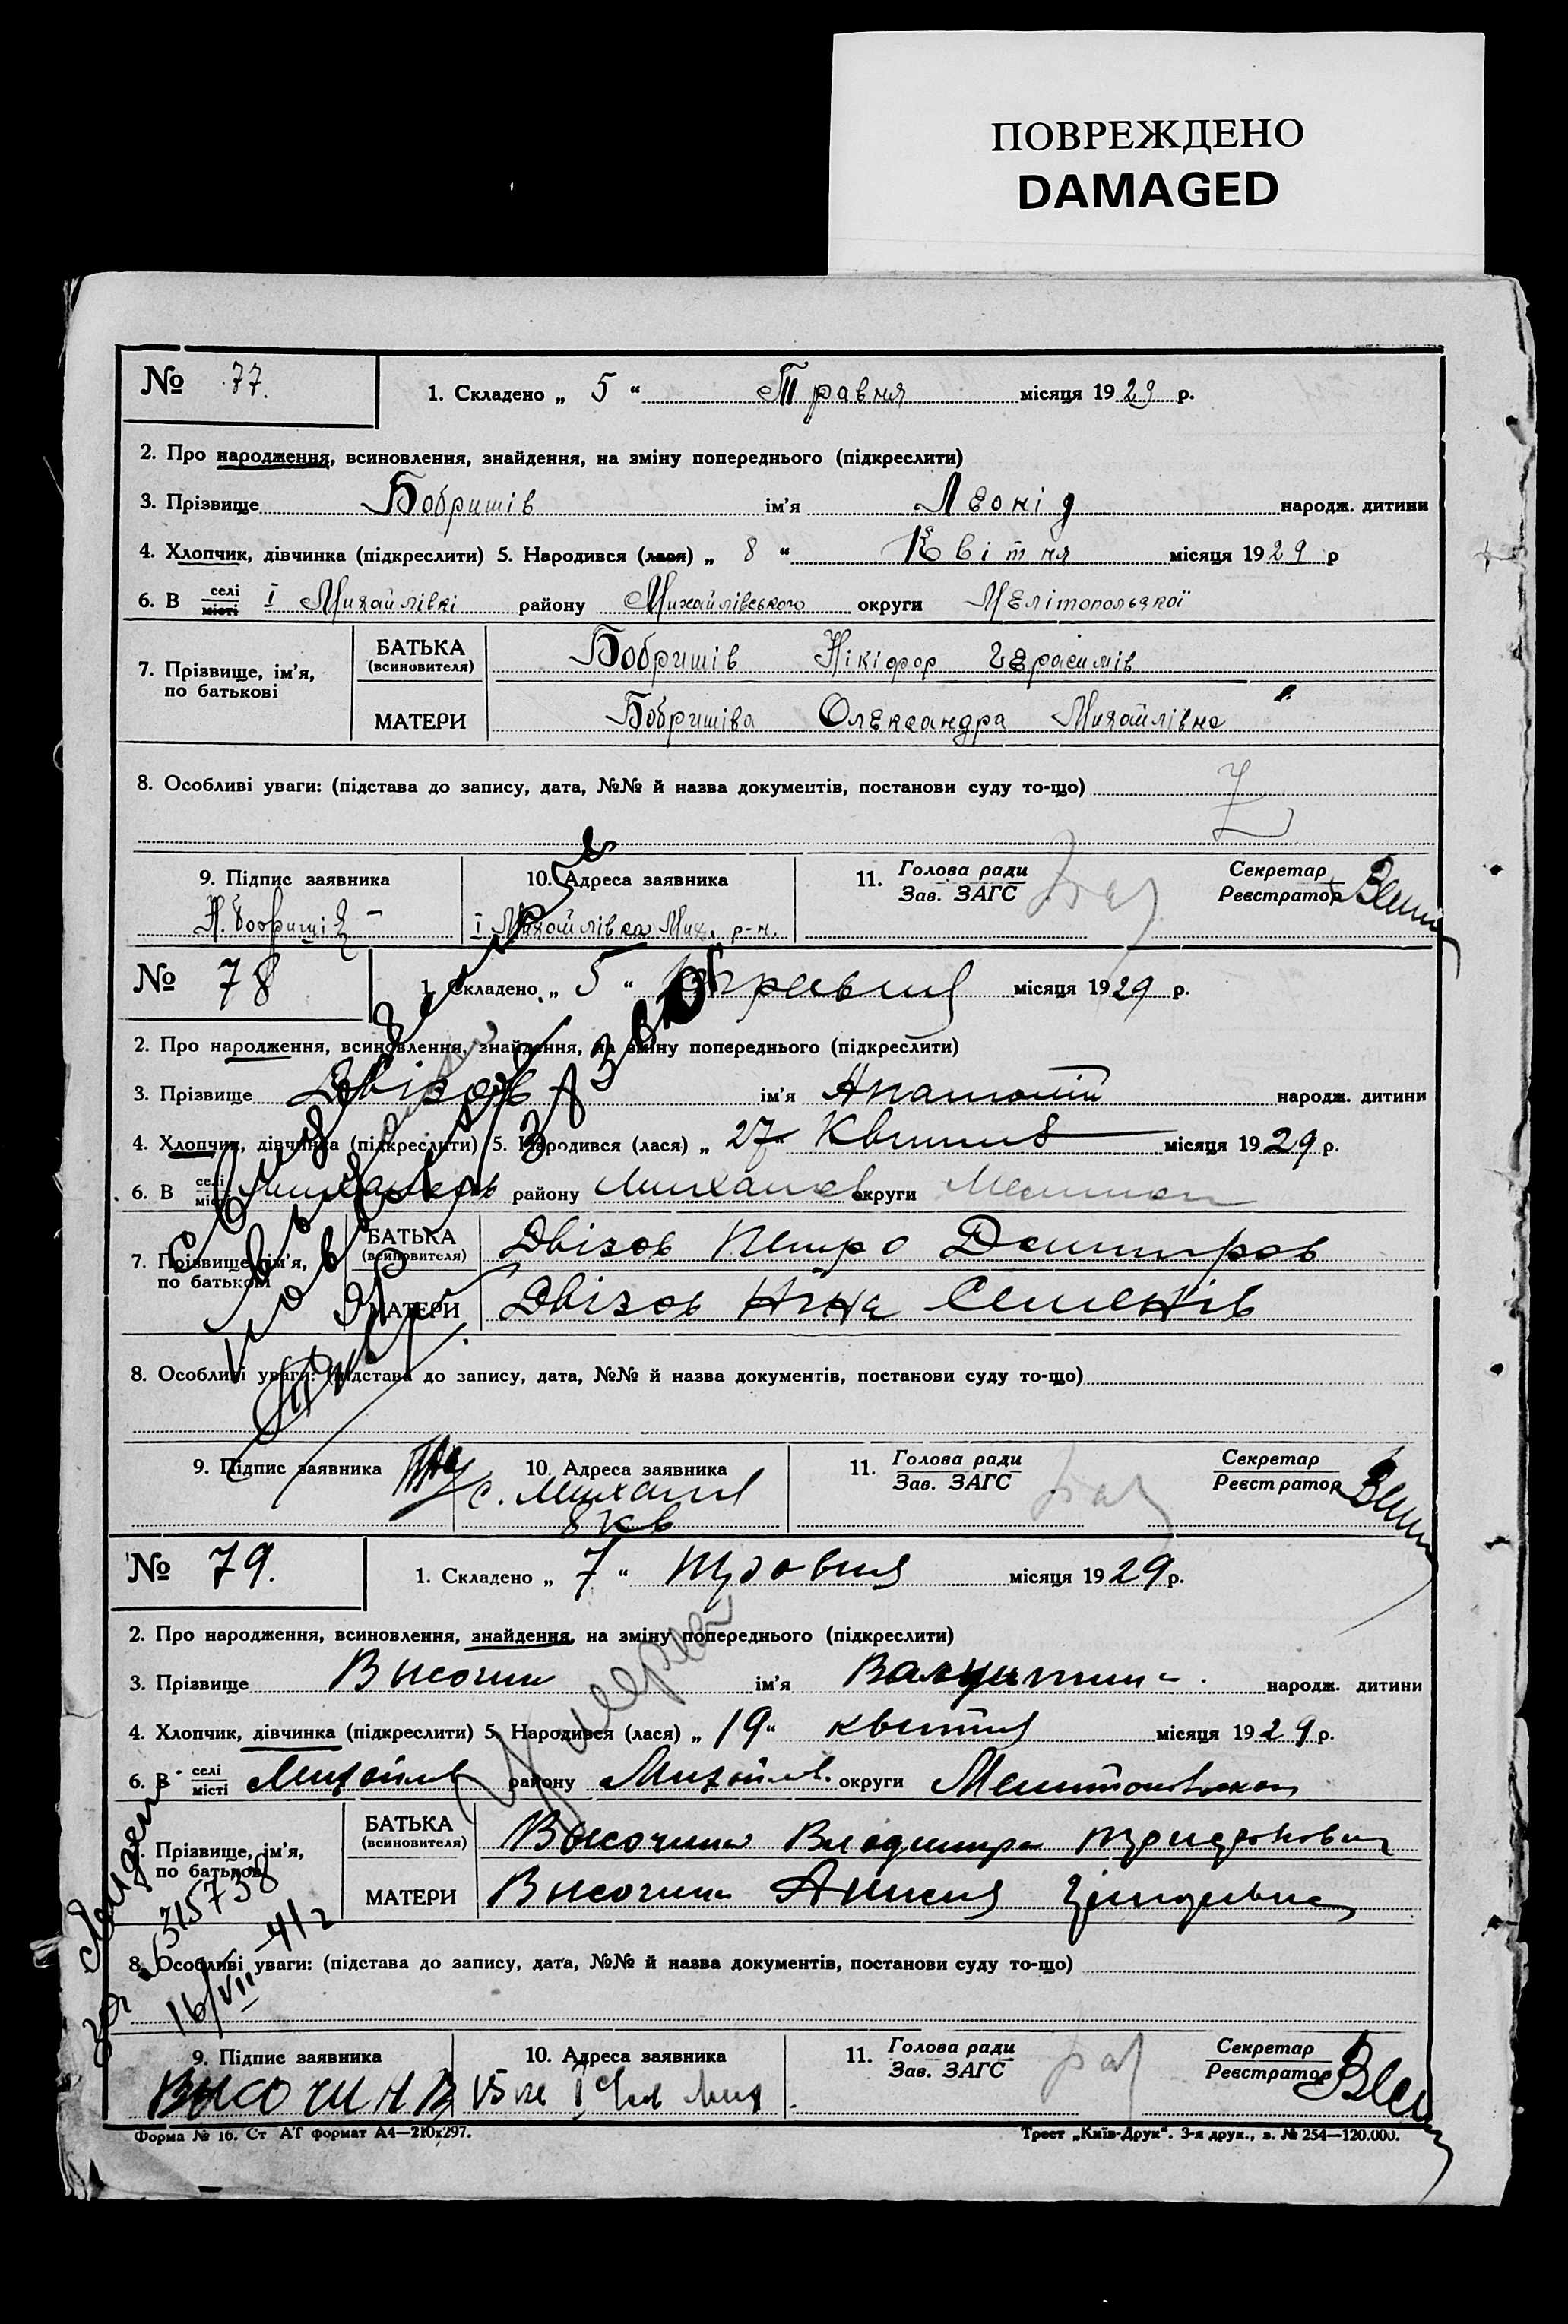 ПОВРЕЖДЕНО
DAMAGED
№ 77.
1. Складено „ 5 “ Травня місяця 1929 р.
2. Про народження, всиновлення, знайдення, на зміну попереднього (підкреслити)
3. Прізвище Бобришів ім'я Леонід народж. дитини
4. Хлопчик, дівчинка (підкреслити) 5. Народився (лася) „ 8 “ Квітня місяця 1929 р
6. В селі місті І Михайлівкі району Михайлівського округи Мелітопольської
7. Прізвище, ім'я, по батькові
БАТЬКА (всиновителя) Бобришів Нікіфор Герасимів
МАТЕРИ Бобришіва Олександра Михайлівна
8. Особливі уваги: (підстава до запису, дата, №№ й назва документів, постанови суду то-що)
9. Підпис заявника 10. Адреса заявника 11. Голова ради Зав. ЗАГС Секретар Реєстратор
Н. Бобришів І Михайлівка Мих. р-н.
№ 78
1. Складено „ 5 “ травня місяця 1929 р.
2. Про народження, всиновлення, знайдення, на зміну попереднього (підкреслити)
3. Прізвище Двізов ім'я Анатолій народж. дитини
4. Хлопчик, дівчинка (підкреслити) 5. Народився (лася) „ 27 Квитня місяця 1929 р.
6. В селі місті району Михайлов округи
7. Прізвище, ім'я, по батькові
БАТЬКА (всиновителя) Двізов Петро Демитров
МАТЕРИ Двізов Ніна Семенів
8. Особливі уваги: (підстава до запису, дата, №№ й назва документів, постанови суду то-що)
9. Підпис заявника 10. Адреса заявника 11. Голова ради Зав. ЗАГС Секретар Реєстратор
с. Михайл
8 кв
№ 79.
1. Складено „ 7 “ травня місяця 1929 р.
2. Про народження, всиновлення, знайдення, на зміну попереднього (підкреслити)
3. Прізвище Высочин ім'я Валентина народж. дитини
4. Хлопчик, дівчинка (підкреслити) 5. Народився (лася) „ 19 “ квитня місяця 1929 р.
6. В селі місті Михайлов району Михайлов. округи Мелитопольской
Прізвище, ім'я, по батькові
БАТЬКА (всиновителя) Высочин Владимир
МАТЕРИ Высочина Анисия
Умерла
315738
16/VII
8. Особливі уваги: (підстава до запису, дата, №№ й назва документів, постанови суду то-що)
9. Підпис заявника 10. Адреса заявника 11. Голова ради Зав. ЗАГС Секретар Реєстратор
Высочин
Форма № 16. Ст АТ формат А4—210х297. Трест „Київ-Друк“. 3-я друк., з. № 254—120.000.